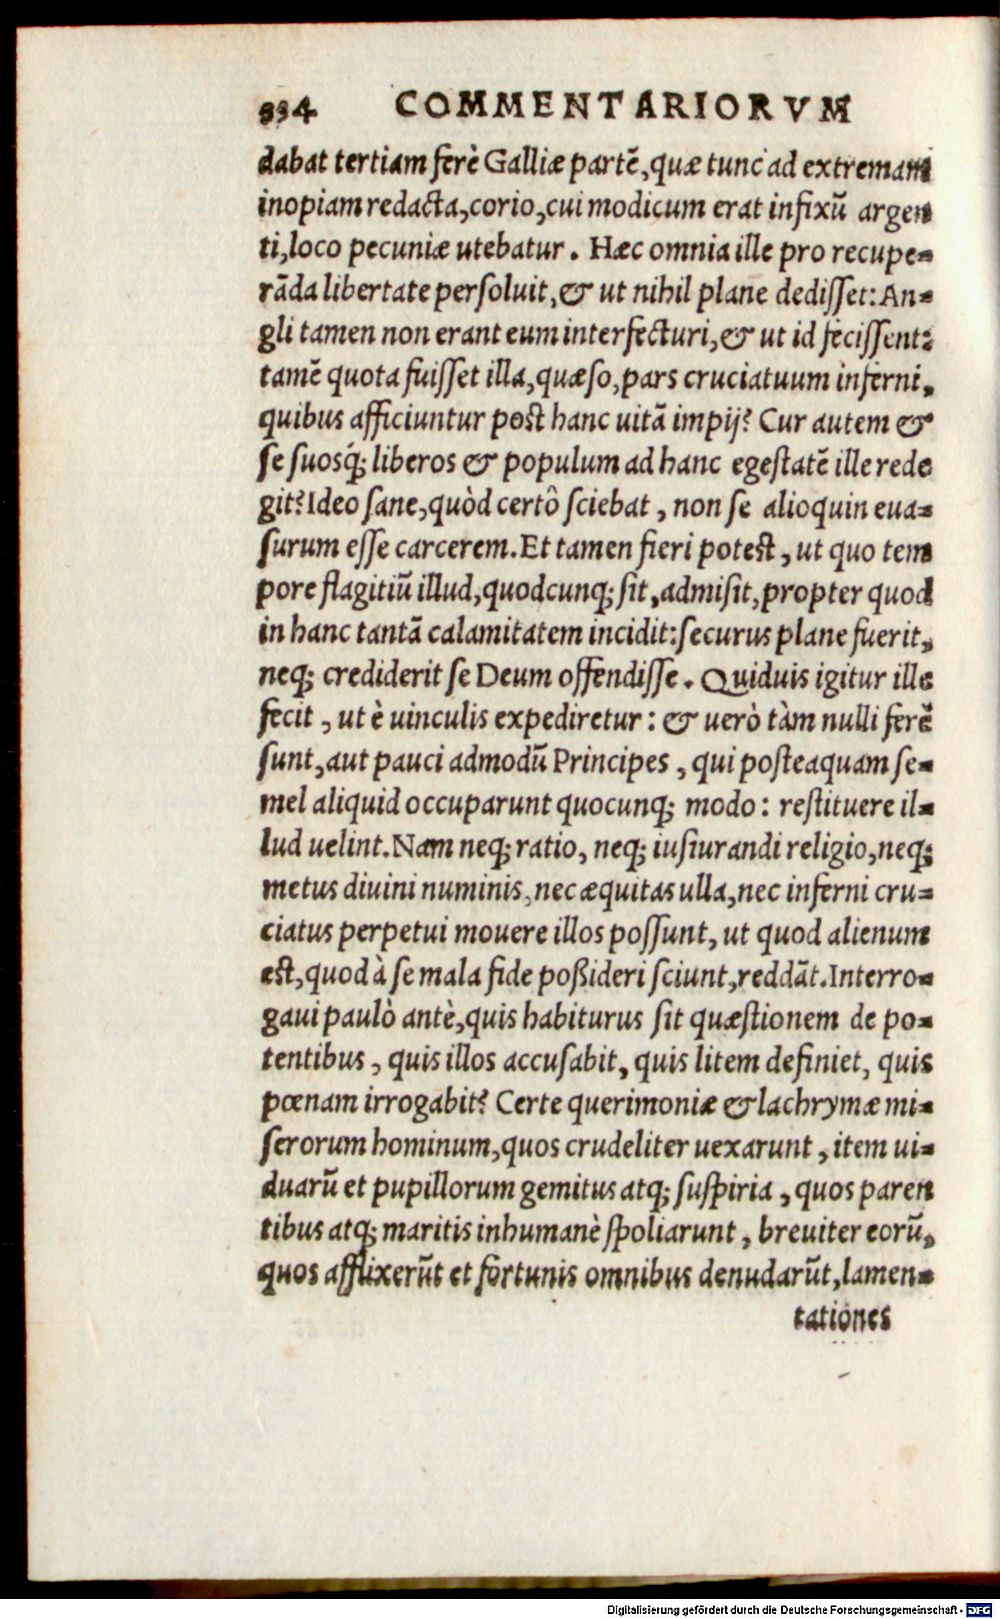 334 COMMENTARIORVM
dabat tertiam ferè Galliæ partẽ, quæ tunc ad extremam
inopiam redacta, corio, cui modicum erat infixũ argen
ti, loco pecuniæ utebatur. Hæc omnia ille pro recupe-
rãda libertate persoluit, & ut nihil plane dedisset: An-
gli tamen non erant eum interfecturi, & ut id fecissent:
tamẽ quota fuisset illa, quæso, pars cruciatuum inferni,
quibus afficiuntur post hanc uitã impij? Cur autem &
se suosq́; liberos & populum ad hanc egestatẽ ille rede
git? Ideo sane, quòd certô sciebat, non se alioquin eua-
surum esse carcerem. Et tamen fieri potest, ut quo tem
pore flagitiũ illud, quodcunq; sit, admisit, propter quod
in hanc tantã calamitatem incidit: securus plane fuerit,
neq; crediderit se Deum offendisse. Quiduis igitur ille
fecit, ut è uinculis expediretur: & uerò tàm nulli ferẽ
sunt, aut pauci admodũ Principes, qui posteaquam se-
mel aliquid occuparunt quocunq; modo: restituere il-
lud uelint. Nam neq; ratio, neq; iusiurandi religio, neq;
metus diuini numinis, nec æquitas ulla, nec inferni cru-
ciatus perpetui mouere illos possunt, ut quod alienum
est, quod à se mala fide poßideri sciunt, reddãt. Interro-
gaui paulò antè, quis habiturus sit quæstionem de po-
tentibus, quis illos accusabit, quis litem definiet, quis
pœnam irrogabit? Certe querimoniæ & lachrymæ mi-
serorum hominum, quos crudeliter uexarunt, item ui-
duarũ et pupillorum gemitus atq; suspiria, quos paren
tibus atq; maritis inhumanè spoliarunt, breuiter eorũ,
quos afflixerũt et fortunis omnibus denudarũt, lamen-
tationes
Digitalisierung gefördert durch die Deutsche Forschungsgemeinschaft - DFG